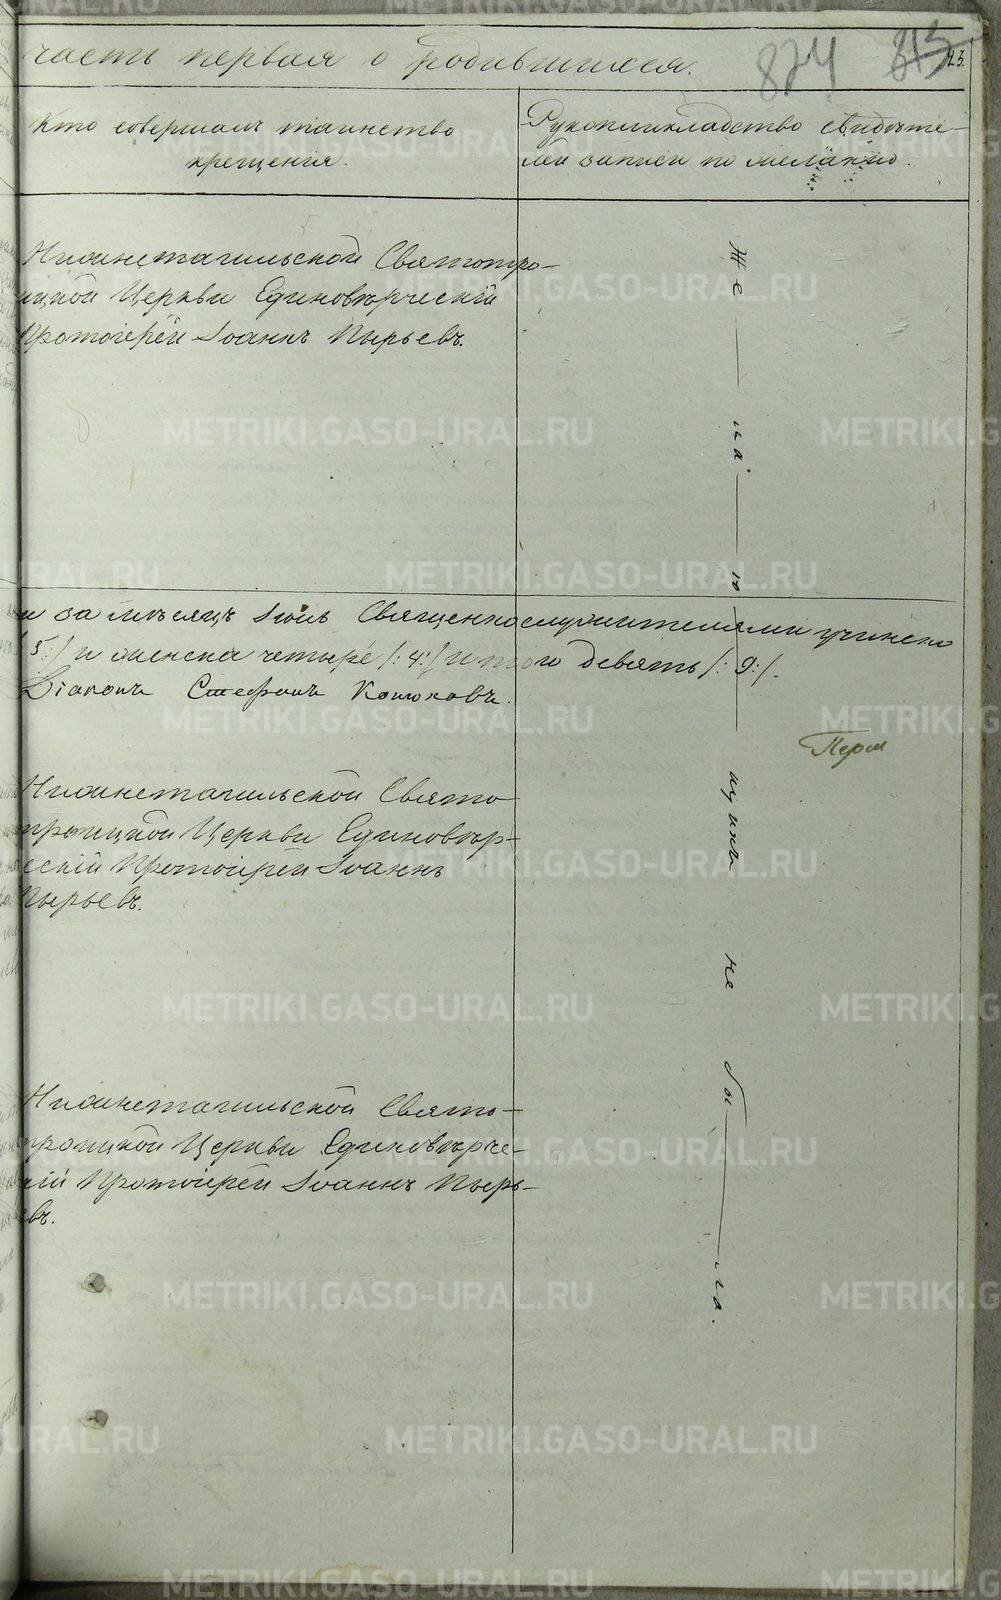 часть первая о родившихся.
824 813 23.
Кто совершалъ таинство
крещенія.
Рукоприкладство свидѣте-
лей записи по желанію.
Нижнетагильской Святотро-
ицкой Церкви Единовѣрческій
Протоіерей Іоаннъ Пырьевъ.
и за мѣсяцъ Іюль Священнослужителями учинено
5:/ и женска четыре /:4:/ итого девять /:9:/.
Діаконъ Стефанъ Конюховъ.
Перм
Нижнетагильской Свято
троицкой Церкви Единовѣр-
ческій Протоіерей Іоаннъ
Пырьевъ.
Нижнетагильской Свято-
троицкой Церкви Единовѣрче-
скій Протоіерей Іоаннъ Пырь-
евъ.
Же ла ю щихъ не бы ло.
METRIKI.GASO-URAL.RU